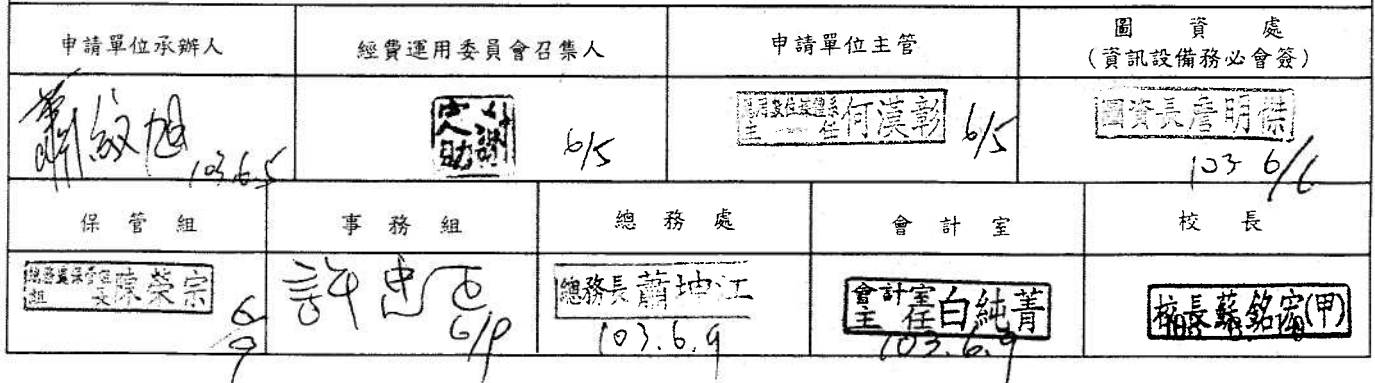 申請單位承辦人
經費運用委員會召集人
申請單位主管
圖資處
(資訊設備務必會簽)
蕭紋旭
103.6.5
6/5
主任何漢彰
6/5
圖資長詹明傑
103 6/6
保管組
事務組
總務處
會計室
校長
總務處保管組
組長陳榮宗
6/9
許忠
6/9
總務長蕭坤江
103.6.9
會計室
主任白純菁
103.6.9
校長蘇銘宏(甲)